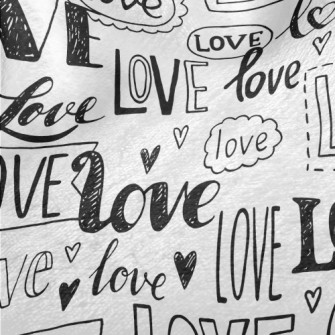 love
LOVE
LOVE
love
Love
LOVE
love
LOVE
love
LOVE
love
LOVE